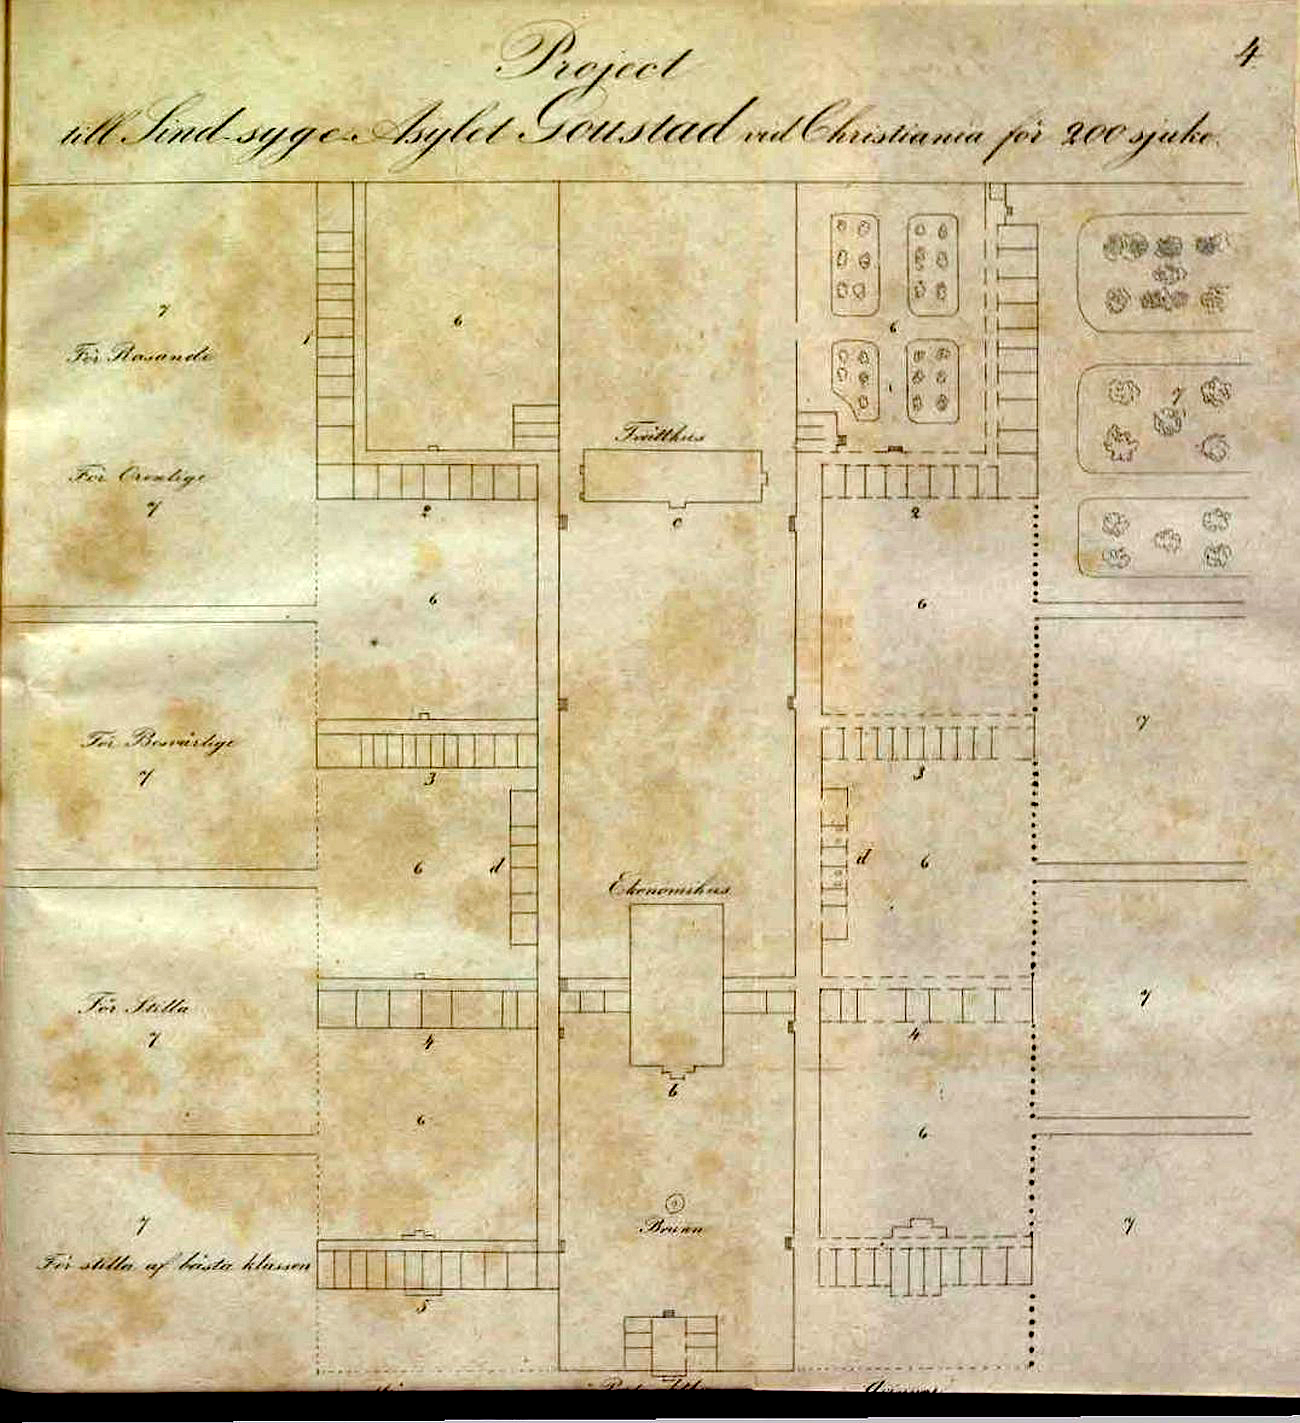 4
Project
till Sind-syge-Asylet Goustad vid Christiania för 200 sjuke.
7
För Rasande
1
6
6
7
Tvätthus
För Orenlige
7
2
c
2
6
6
För Besvärlige
7
3
3
7
6
d
d
6
Ekonomihus
För Stilla
7
4
4
7
b
6
6
7
Brunn
7
För stilla af bästa klassen
5